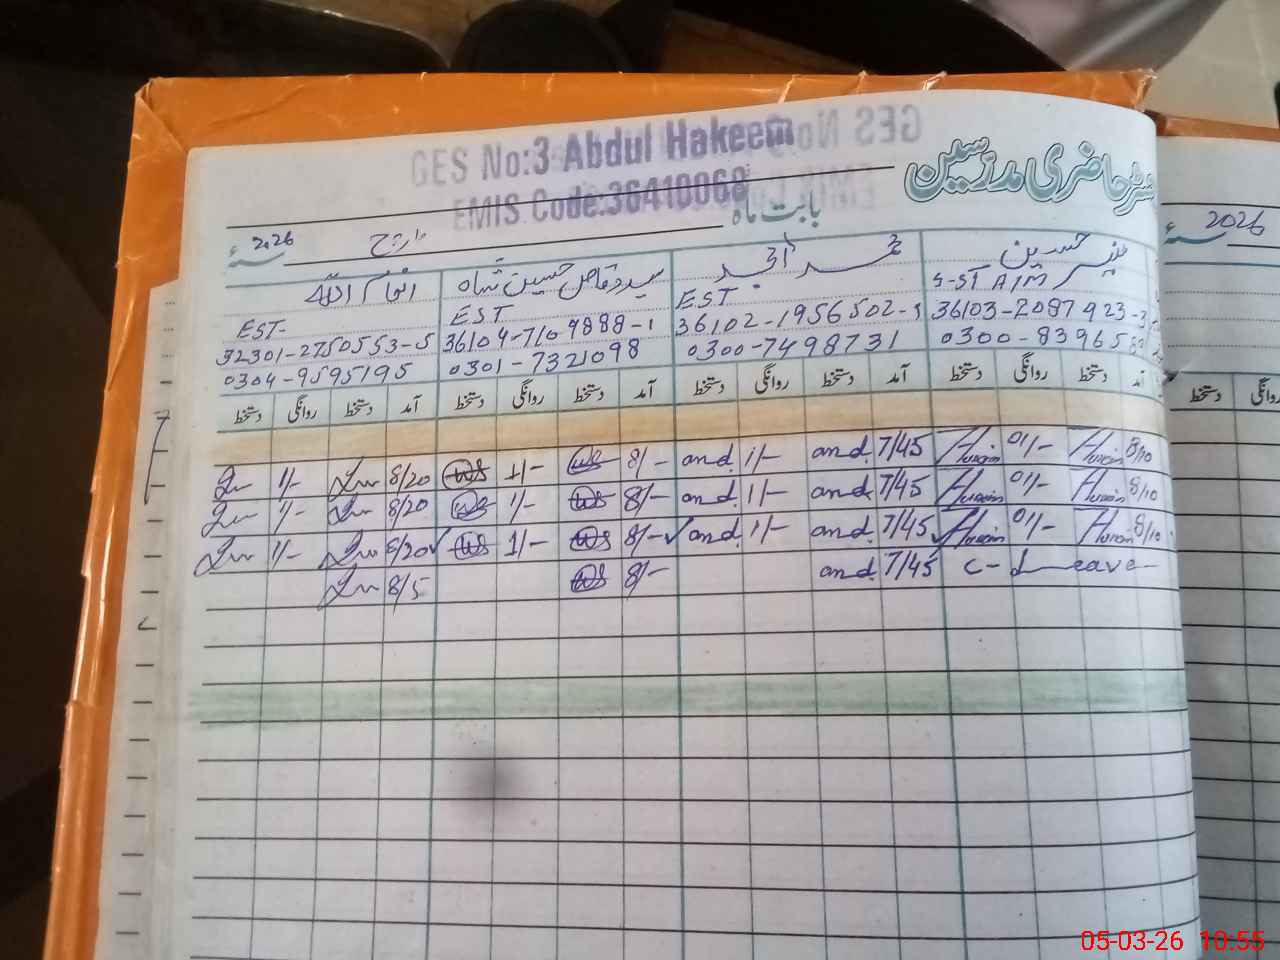 GES No:3 Abdul Hakeem
EMIS Code:36410068
رجسٹر حاضری مدرسین
بابت ماہ مارچ 2026ء
2026
انعام اللہ
EST-
32301-2750553-5
0304-9595195
سید وقاص حسین شاہ
EST
36104-7109888-1
0301-7321098
محمد امجد
EST.
36102-1956502-
0300-7498731
حسین
S-ST AIM
36103-2087923-3
0300-8396
دستخط روانگی دستخط آمد دستخط روانگی دستخط آمد دستخط روانگی دستخط آمد دستخط روانگی دستخط آمد
دستخط روانگی
1/- 8/20 WS 1/- WS 8/- and. 1/- and. 7/45 Husain 01/- Husain 8/10
1/- 8/20 WS 1/- WS 8/- and. 1/- and. 7/45 Husain 01/- Husain 8/10
1/- 8/20 WS 1/- WS 8/- and. 1/- and. 7/45 Husain 01/- Husain 8/10
8/5 WS 8/- and. 7/45 C-Leave-
05-03-26 10:55